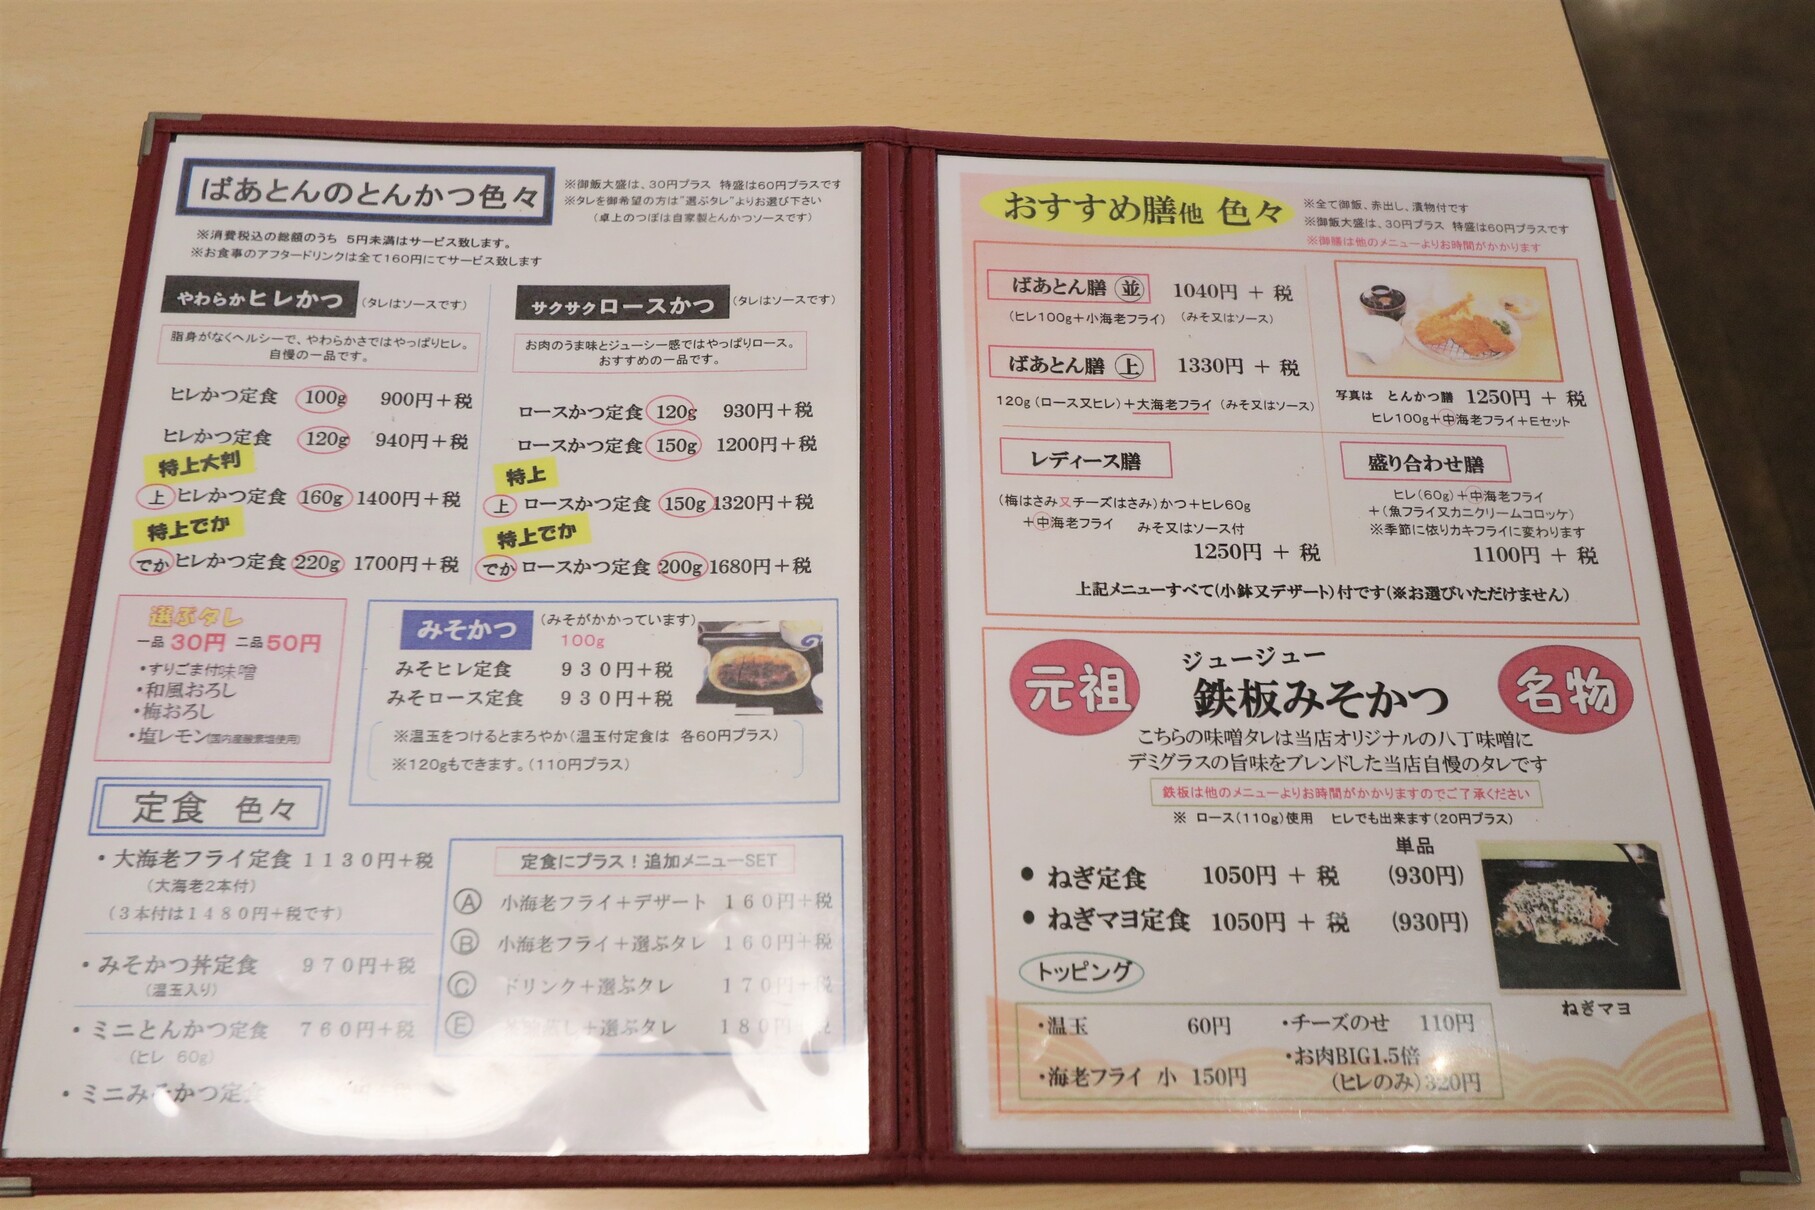 ばあとんのとんかつ色々
※御飯大盛は、30円プラス 特盛は60円プラスです
※タレを御希望の方は"選ぶタレ"よりお選び下さい
(卓上のつぼは自家製とんかつソースです)
※消費税込の総額のうち 5円未満はサービス致します。
※お食事のアフタードリンクは全て160円にてサービス致します
やわらかヒレかつ (タレはソースです)
脂身がなくヘルシーで、やわらかさではやっぱりヒレ。
自慢の一品です。
ヒレかつ定食 100g 900円+税
ヒレかつ定食 120g 940円+税
特上大判
上 ヒレかつ定食 160g 1400円+税
特上でか
でか ヒレかつ定食 220g 1700円+税
サクサクロースかつ (タレはソースです)
お肉のうま味とジューシー感ではやっぱりロース。
おすすめの一品です。
ロースかつ定食 120g 930円+税
ロースかつ定食 150g 1200円+税
特上
上 ロースかつ定食 150g 1320円+税
特上でか
でか ロースかつ定食 200g 1680円+税
選ぶタレ
一品 30円 二品 50円
・すりごま付味噌
・和風おろし
・梅おろし
・塩レモン(国内産酸素塩使用)
みそかつ (みそがかかっています)
100g
みそヒレ定食 930円+税
みそロース定食 930円+税
※温玉をつけるとまろやか(温玉付定食は 各60円プラス)
※120gもできます。(110円プラス)
定食 色々
・大海老フライ定食 1130円+税
(大海老2本付)
(3本付は1480円+税です)
・みそかつ丼定食 970円+税
(温玉入り)
・ミニとんかつ定食 760円+税
(ヒレ 60g)
・ミニみそかつ定食
定食にプラス!追加メニューSET
A 小海老フライ+デザート 160円+税
B 小海老フライ+選ぶタレ 160円+税
C ドリンク+選ぶタレ 170円+税
E 蒸し+選ぶタレ 180円+税
おすすめ膳他 色々
※全て御飯、赤出し、漬物付です
※御飯大盛は、30円プラス 特盛は60円プラスです
※御膳は他のメニューよりお時間がかかります
ばあとん膳 並 1040円 + 税
(ヒレ100g+小海老フライ) (みそ又はソース)
ばあとん膳 上 1330円 + 税
120g(ロース又ヒレ)+大海老フライ (みそ又はソース)
写真は とんかつ膳 1250円 + 税
ヒレ100g+中海老フライ+Eセット
レディース膳
(梅はさみ又チーズはさみ)かつ+ヒレ60g
+中海老フライ みそ又はソース付
1250円 + 税
盛り合わせ膳
ヒレ(60g)+中海老フライ
+(魚フライ又カニクリームコロッケ)
※季節に依りカキフライに変わります
1100円 + 税
上記メニューすべて(小鉢又デザート)付です(※お選びいただけません)
元祖
ジュージュー
鉄板みそかつ
名物
こちらの味噌タレは当店オリジナルの八丁味噌に
デミグラスの旨味をブレンドした当店自慢のタレです
鉄板は他のメニューよりお時間がかかりますのでご了承ください
※ ロース(110g)使用 ヒレでも出来ます(20円プラス)
単品
● ねぎ定食 1050円 + 税 (930円)
● ねぎマヨ定食 1050円 + 税 (930円)
ねぎマヨ
トッピング
・温玉 60円
・チーズのせ 110円
・海老フライ 小 150円
・お肉BIG1.5倍
(ヒレのみ)320円